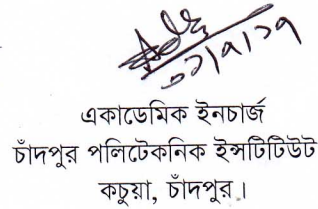 একাডেমিক ইনচার্জ
চাঁদপুর পলিটেকনিক ইন্সটিটিউট
কচুয়া, চাঁদপুর।